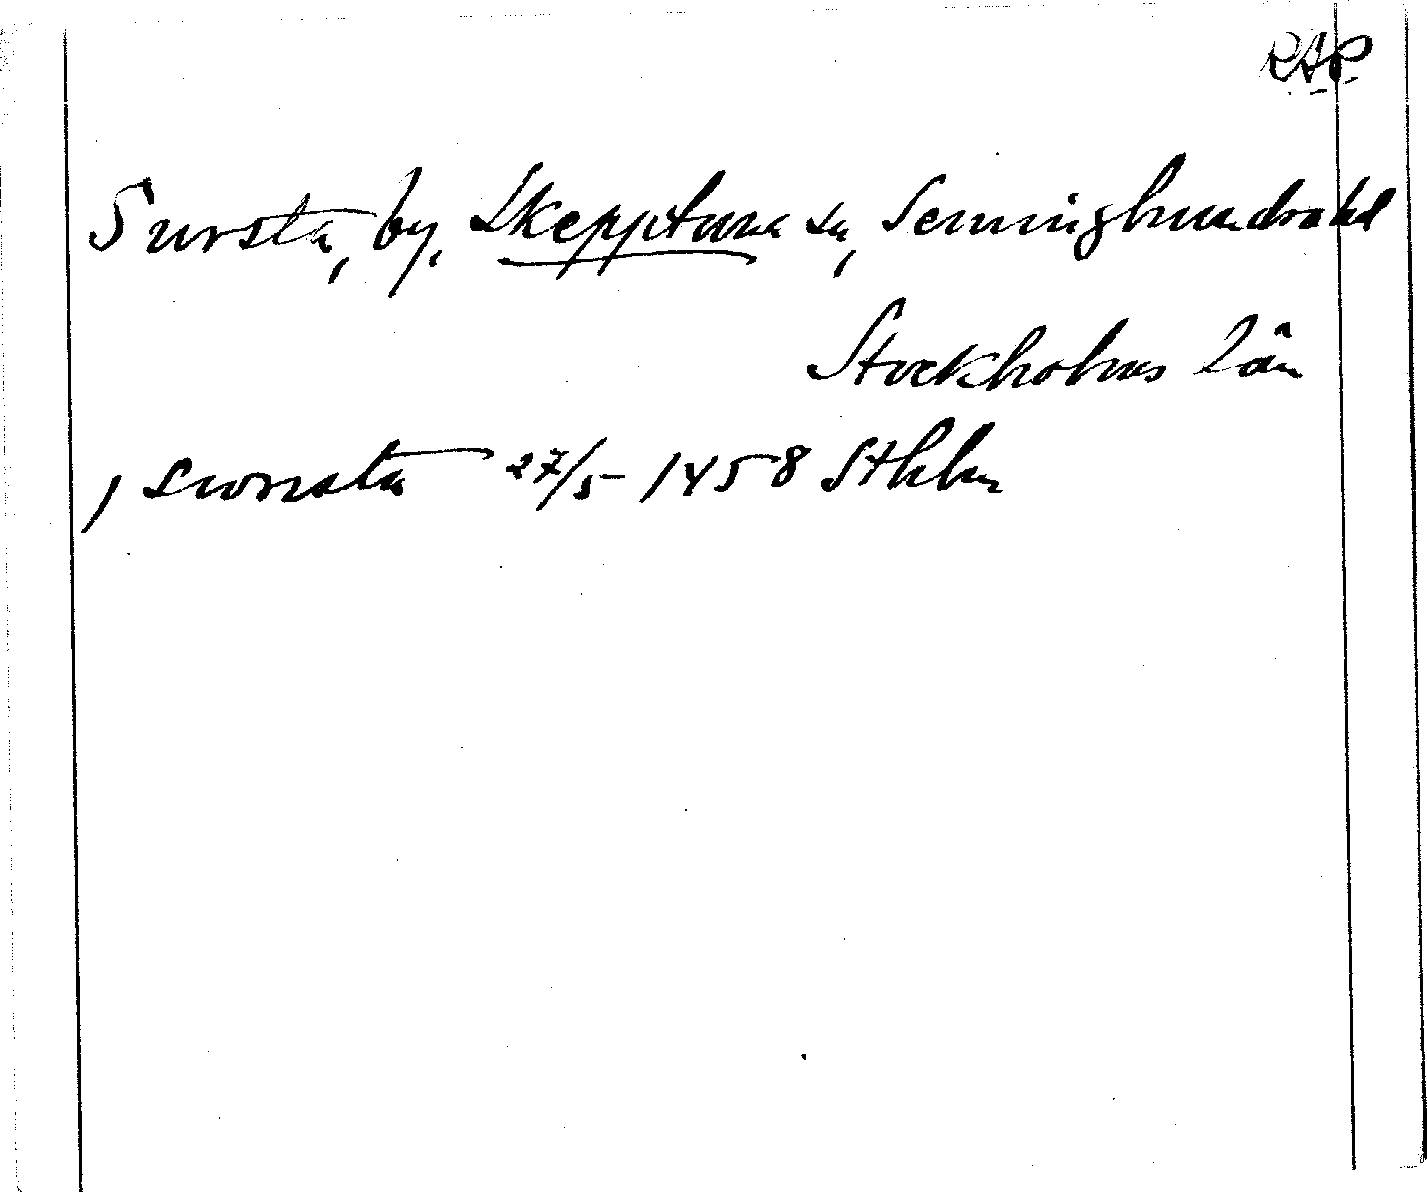 RAP
Sursta, by, Skepptuna sn, Seminghundra hd
Stockholms län
, sworsta 27/5 1458 Sthlm